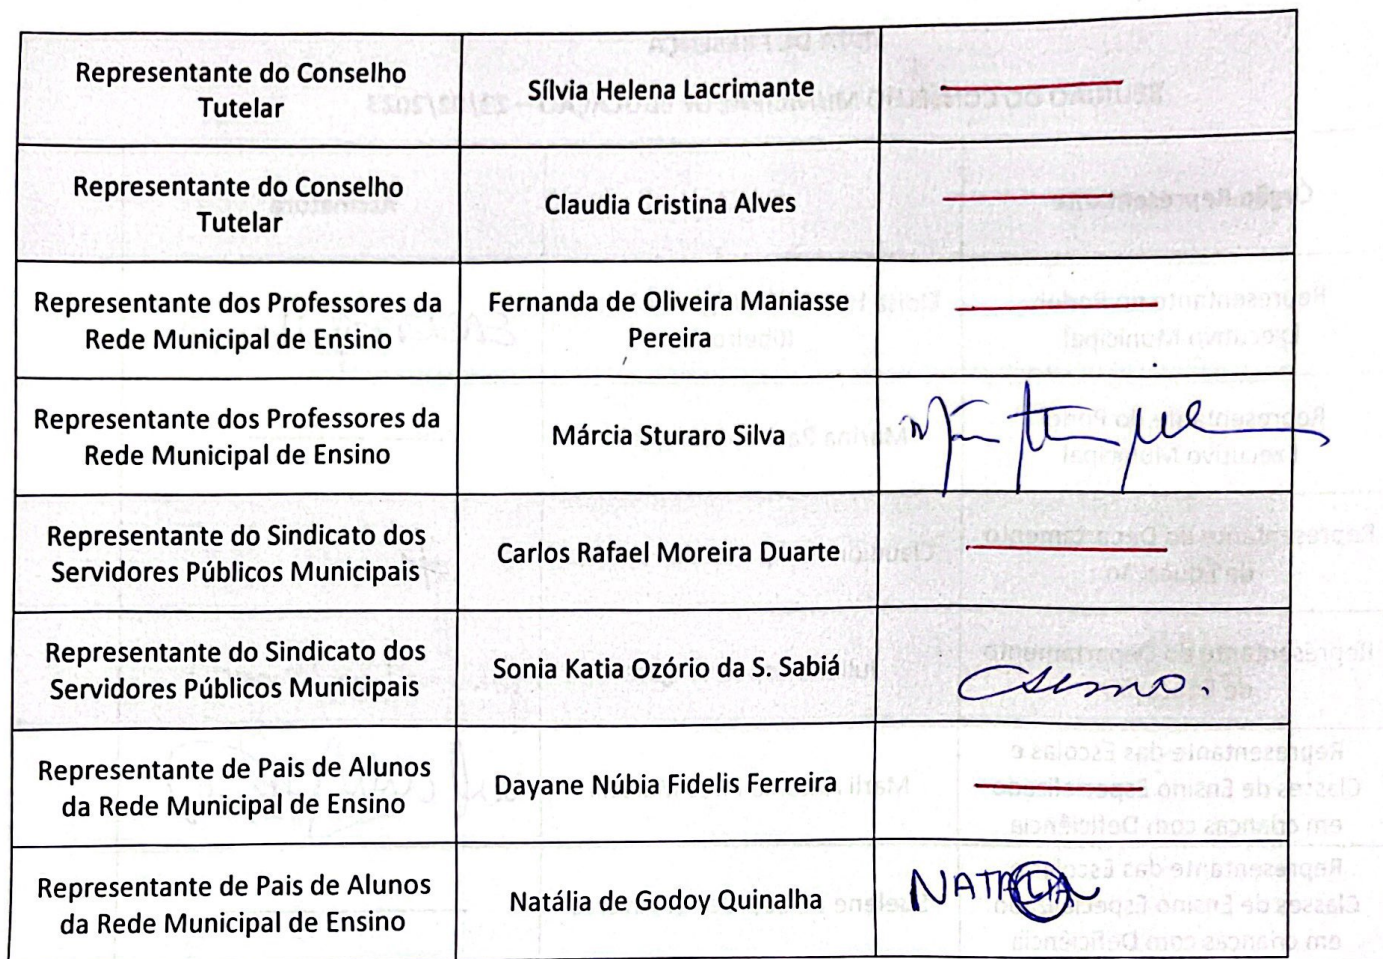 Representante do Conselho
Tutelar
Sílvia Helena Lacrimante
Representante do Conselho
Tutelar
Claudia Cristina Alves
Representante dos Professores da
Rede Municipal de Ensino
Fernanda de Oliveira Maniasse
Pereira
Representante dos Professores da
Rede Municipal de Ensino
Márcia Sturaro Silva
Representante do Sindicato dos
Servidores Públicos Municipais
Carlos Rafael Moreira Duarte
Representante do Sindicato dos
Servidores Públicos Municipais
Sonia Katia Ozório da S. Sabiá
Representante de Pais de Alunos
da Rede Municipal de Ensino
Dayane Núbia Fidelis Ferreira
Representante de Pais de Alunos
da Rede Municipal de Ensino
Natália de Godoy Quinalha
NATALIA